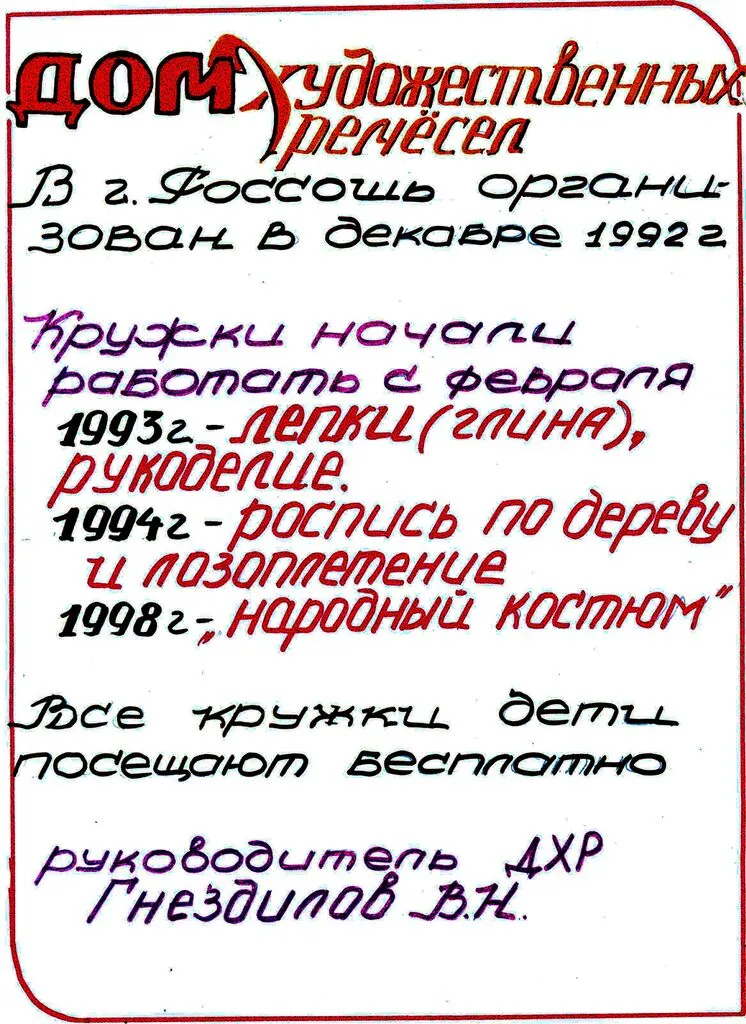 ДОМ Художественных
ремёсел
В г. Россошь органи-
зован в декабре 1992 г
Кружки начали
работать с февраля
1993 г. - лепки (глина),
рукоделие.
1994 г - роспись по дереву
и лозоплетение
1998 г - „народный костюм"
Все кружки дети
посещают бесплатно
руководитель ДХР
Гнездилов В.Н.